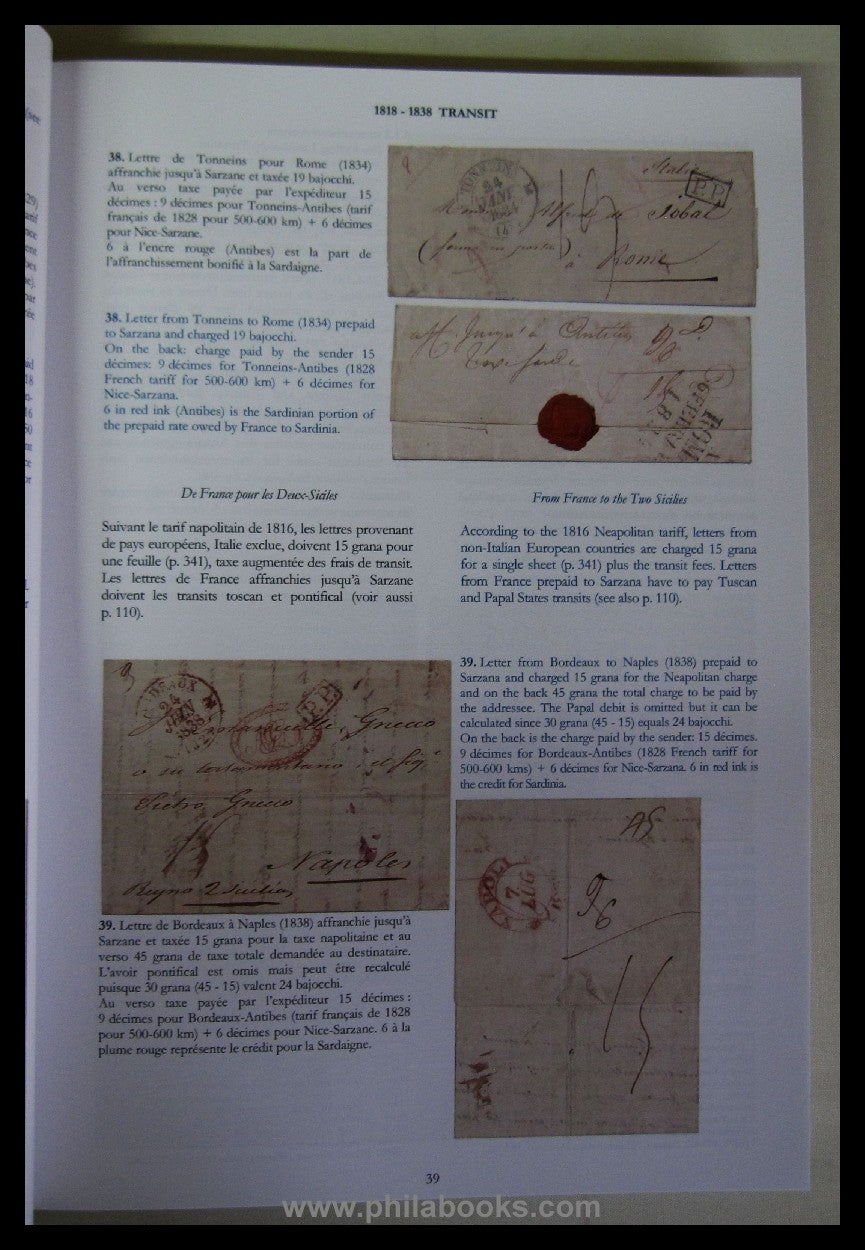 1818 - 1838 TRANSIT
38. Lettre de Tonneins pour Rome (1834)
affranchie jusqu'à Sarzane et taxée 19 bajocchi.
Au verso taxe payée par l'expéditeur 15
décimes : 9 décimes pour Tonneins-Antibes (tarif
français de 1828 pour 500-600 km) + 6 décimes
pour Nice-Sarzane.
6 à l'encre rouge (Antibes) est la part de
l'affranchissement bonifié à la Sardaigne.
Italie
P.P.
24
à Rome
38. Letter from Tonneins to Rome (1834) prepaid
to Sarzana and charged 19 bajocchi.
On the back: charge paid by the sender 15
décimes: 9 décimes for Tonneins-Antibes (1828
French tariff for 500-600 km) + 6 décimes for
Nice-Sarzana.
6 in red ink (Antibes) is the Sardinian portion of
the prepaid rate owed by France to Sardinia.
De France pour les Deux-Siciles
Suivant le tarif napolitain de 1816, les lettres provenant
de pays européens, Italie exclue, doivent 15 grana pour
une feuille (p. 341), taxe augmentée des frais de transit.
Les lettres de France affranchies jusqu'à Sarzane
doivent les transits toscan et pontifical (voir aussi
p. 110).
From France to the Two Sicilies
According to the 1816 Neapolitan tariff, letters from
non-Italian European countries are charged 15 grana
for a single sheet (p. 341) plus the transit fees. Letters
from France prepaid to Sarzana have to pay Tuscan
and Papal States transits (see also p. 110).
24
1838
P.P.
Gnecco
Pietro Gnecco
Napoles
Reyno 2 Sicilias
39. Letter from Bordeaux to Naples (1838) prepaid to
Sarzana and charged 15 grana for the Neapolitan charge
and on the back 45 grana the total charge to be paid by
the addressee. The Papal debit is omitted but it can be
calculated since 30 grana (45 - 15) equals 24 bajocchi.
On the back is the charge paid by the sender: 15 décimes.
9 décimes for Bordeaux-Antibes (1828 French tariff for
500-600 kms) + 6 décimes for Nice-Sarzana. 6 in red ink is
the credit for Sardinia.
45
NAPOLI
7
LUG
15
39. Lettre de Bordeaux à Naples (1838) affranchie jusqu'à
Sarzane et taxée 15 grana pour la taxe napolitaine et au
verso 45 grana de taxe totale demandée au destinataire.
L'avoir pontifical est omis mais peut être recalculé
puisque 30 grana (45 - 15) valent 24 bajocchi.
Au verso taxe payée par l'expéditeur 15 décimes :
9 décimes pour Bordeaux-Antibes (tarif français de 1828
pour 500-600 km) + 6 décimes pour Nice-Sarzane. 6 à la
plume rouge représente le crédit pour la Sardaigne.
39
www.philabooks.com